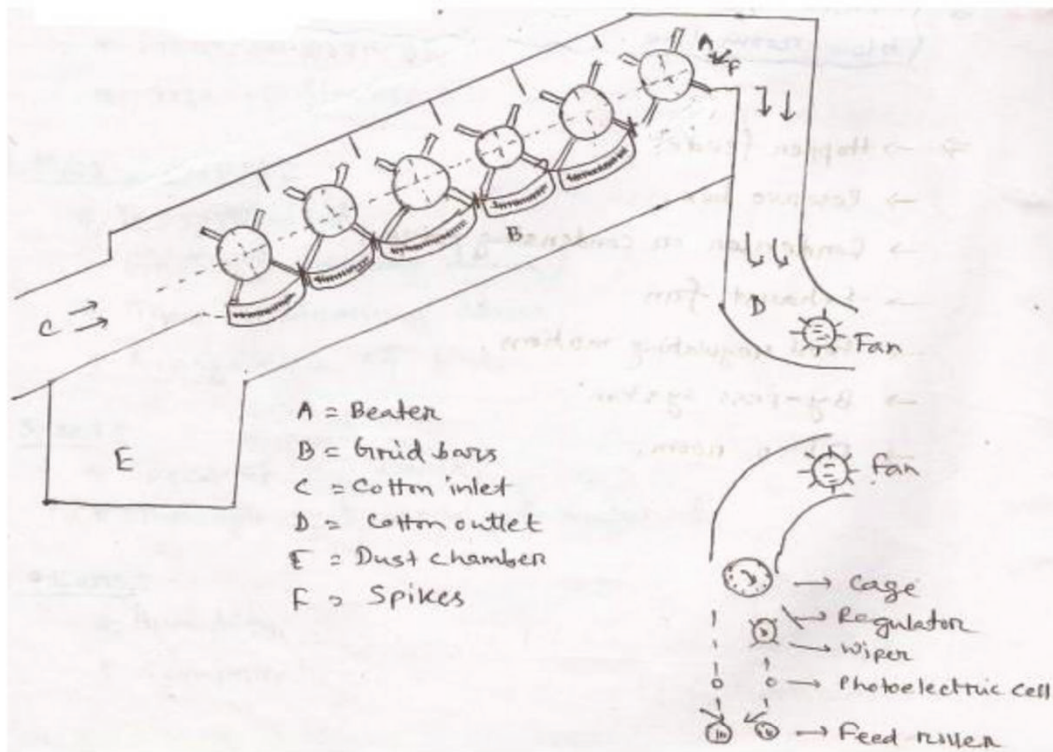 A
F
C
B
D
Fan
E
A = Beater
B = Grid bars
C = Cotton inlet
D = Cotton outlet
E = Dust chamber
F = Spikes
Fan
Cage
Regulator
Wiper
Photoelectric cell
Feed roller